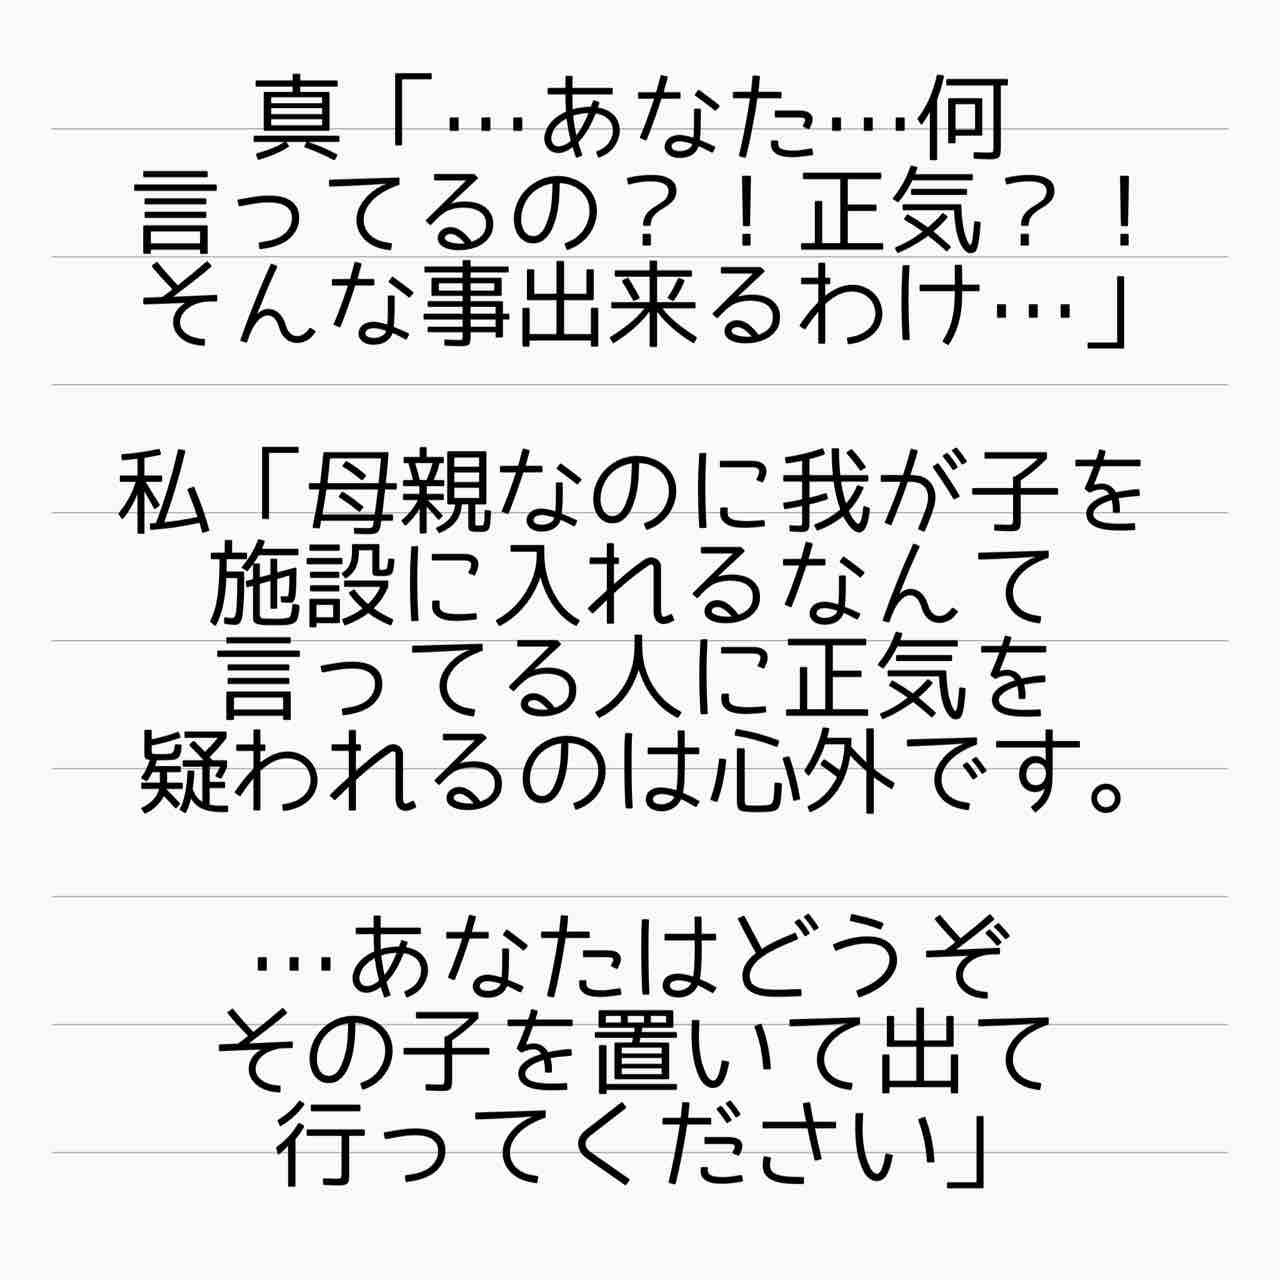 真「…あなた…何
言ってるの？！正気？！
そんな事出来るわけ…」
私「母親なのに我が子を
施設に入れるなんて
言ってる人に正気を
疑われるのは心外です。
…あなたはどうぞ
その子を置いて出て
行ってください」